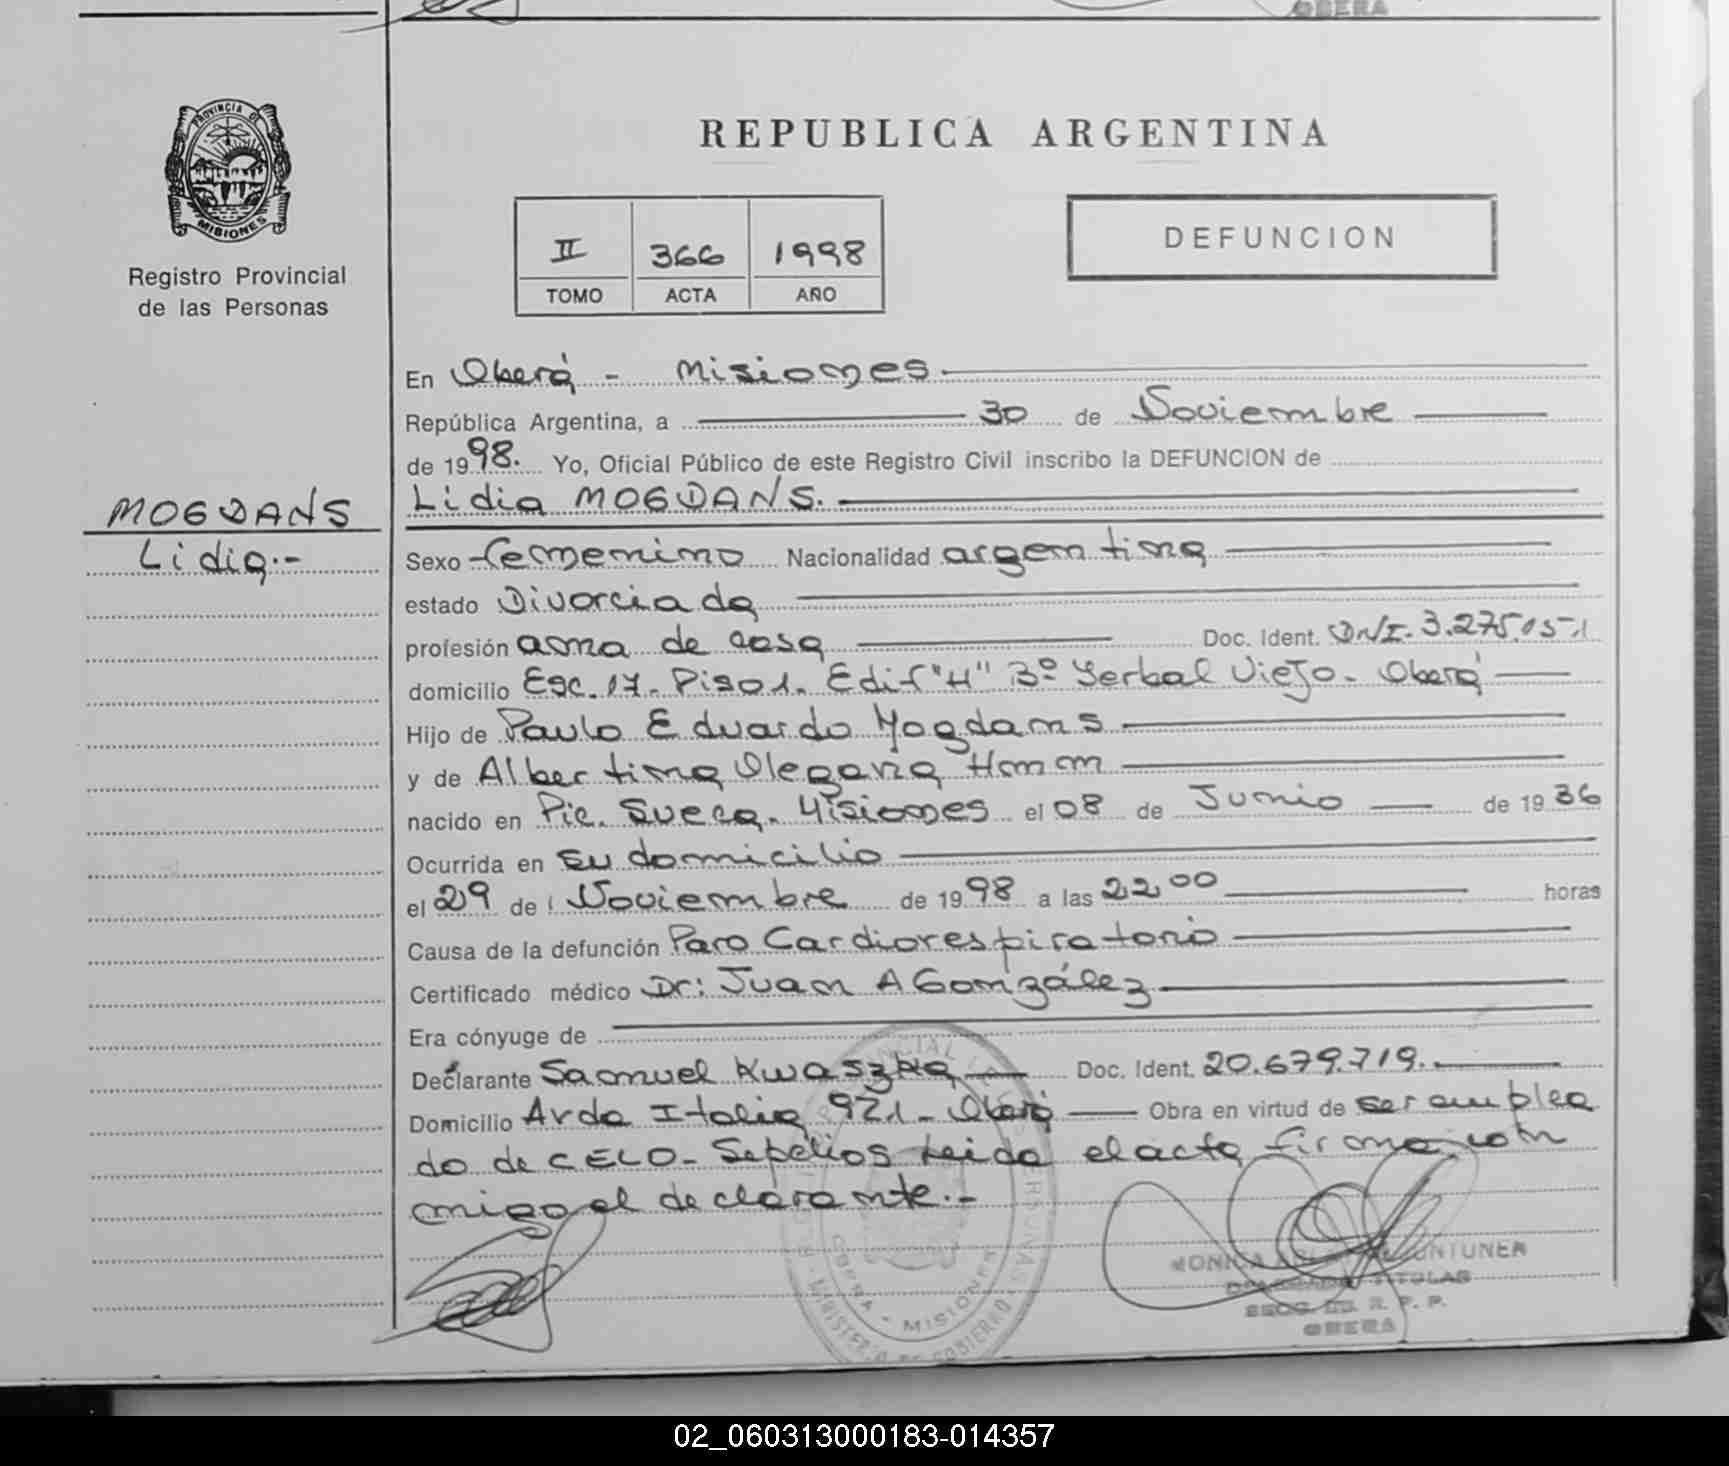 OBERA
PROVINCIA DE
MISIONES
Registro Provincial
de las Personas
REPUBLICA ARGENTINA
II 366 1998
TOMO ACTA AÑO
DEFUNCION
En Oberá - Misiones
República Argentina, a 30 de Noviembre
de 1998. Yo, Oficial Público de este Registro Civil inscribo la DEFUNCION de
Lidia MOGDANS.
MOGDANS
Lidia.-
Sexo femenino Nacionalidad argentina
estado Divorciada
profesión ama de casa Doc. Ident. DNI. 3.275.051
domicilio Esc. 17. Piso 1. Edif "H" Bº Yerbal Viejo - Oberá
Hijo de Paulo Eduardo Mogdans
y de Albertina Olegaria Hamm
nacido en Pic. Sueca. Misiones el 08 de Junio de 1936
Ocurrida en su domicilio
el 29 de Noviembre de 1998 a las 22 00 horas
Causa de la defunción Paro Cardiorespiratorio
Certificado médico Dr: Juan A González
Era cónyuge de
Declarante Samuel Kwaszka Doc. Ident. 20.679.719.
Domicilio Avda Italia 921 - Oberá Obra en virtud de ser emplea
do de CELO - Sepelios Leida el acta firma con
migo el declarante.-
OBERA - MISIONES
MINISTERIO DE GOBIERNO
MONICA
TITULAR
R. P. P.
OBERA
02_060313000183-014357